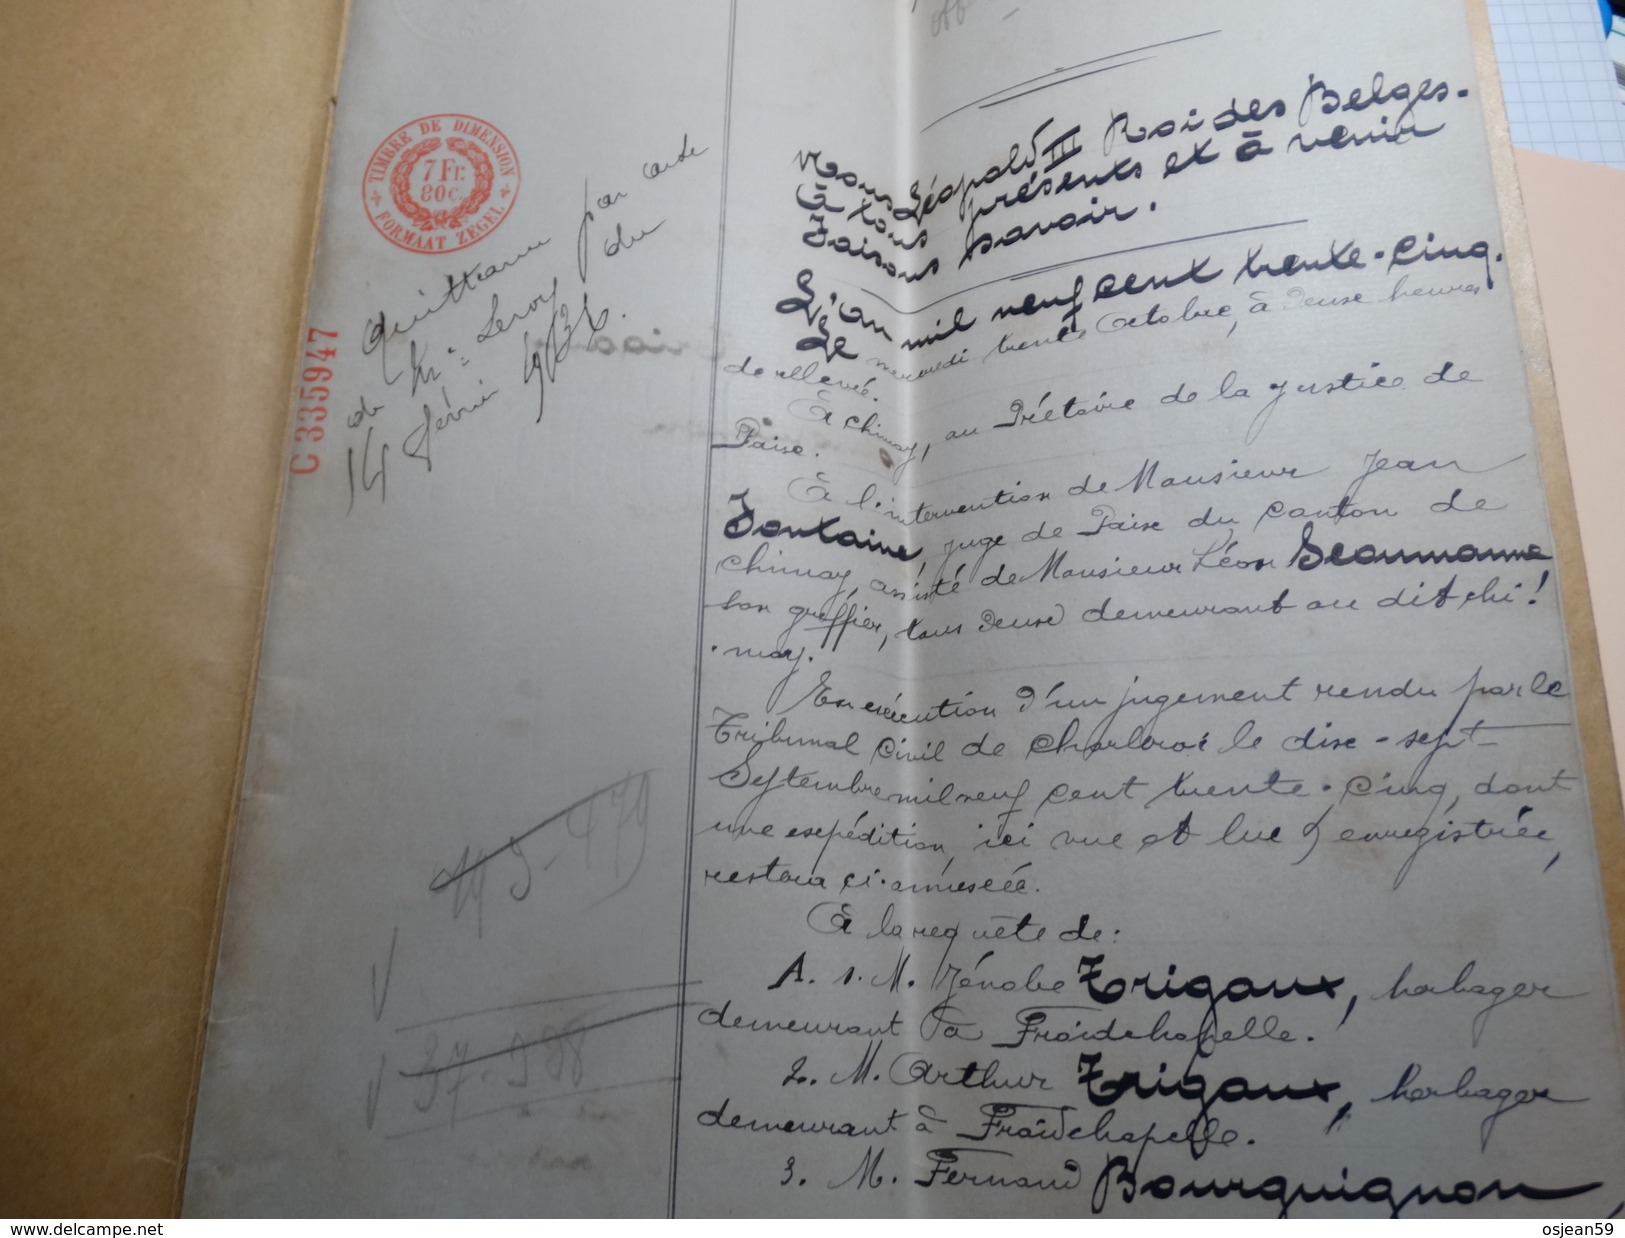 TIMBRE DE DIMENSION
7 Fr.
80 c.
FORMAAT ZEGEL
C 335947
Quittance par carte
de Me Leroy du
14 février 1936.
Nous Léopold III Roi des Belges.
À tous présents et à venir
Faisons savoir.
L'an mil neuf cent trente-cinq.
Le mercredi trente Octobre, à deux heures
de relevée.
À Chimay, au Prétoire de la Justice de
Paix.
À l'intervention de Monsieur Jean
Fontaine, juge de Paix du canton de
Chimay, assisté de Monsieur Léon
son greffier, tous deux demeurant au dit Chi-
-may.
En exécution d'un jugement rendu par le
Tribunal Civil de Charleroi le dix-sept
Septembre mil neuf cent trente-cinq, dont
une expédition, ici vue et lue, enregistrée,
restera ci-annexée.
À la requête de:
A. 1. M. Zénobe Trigaux, herbager
demeurant à Froidchapelle.
2. M. Arthur Trigaux, herbager
demeurant à Froidchapelle.
3. M. Fernand Bourguignon,
www.delcampe.net
osjean59